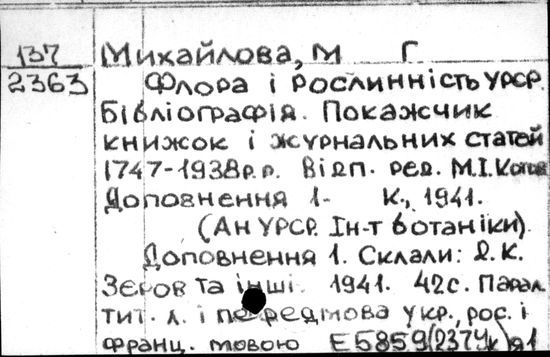 137 Михайлова, М Г
2363 Флора і рослинність УРСР.
Бібліографія. Покажчик
книжок і журнальних статей
1747-1938 р.р. Відп. ред. М.І. Котов
Доповнення 1- К., 1941.
(АН УРСР. Ін-т ботаніки).
Доповнення 1. Склали: Д. К.
Зеров та інші. 1941. 42 с. Парал.
тит. л. і передмова укр., рос. і
франц. мовою Е5859(237Ук)я1